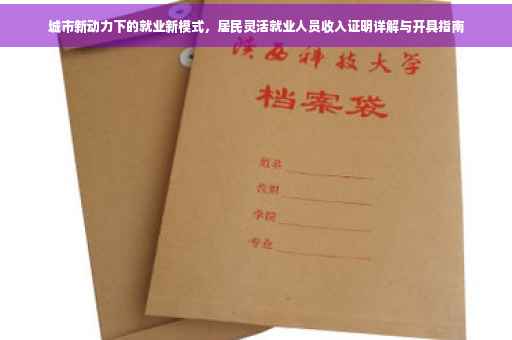 城市新动力下的就业新模式，居民灵活就业人员收入证明详解与开具指南
陕西科技大学
档案袋
姓名
性别
学院
专业